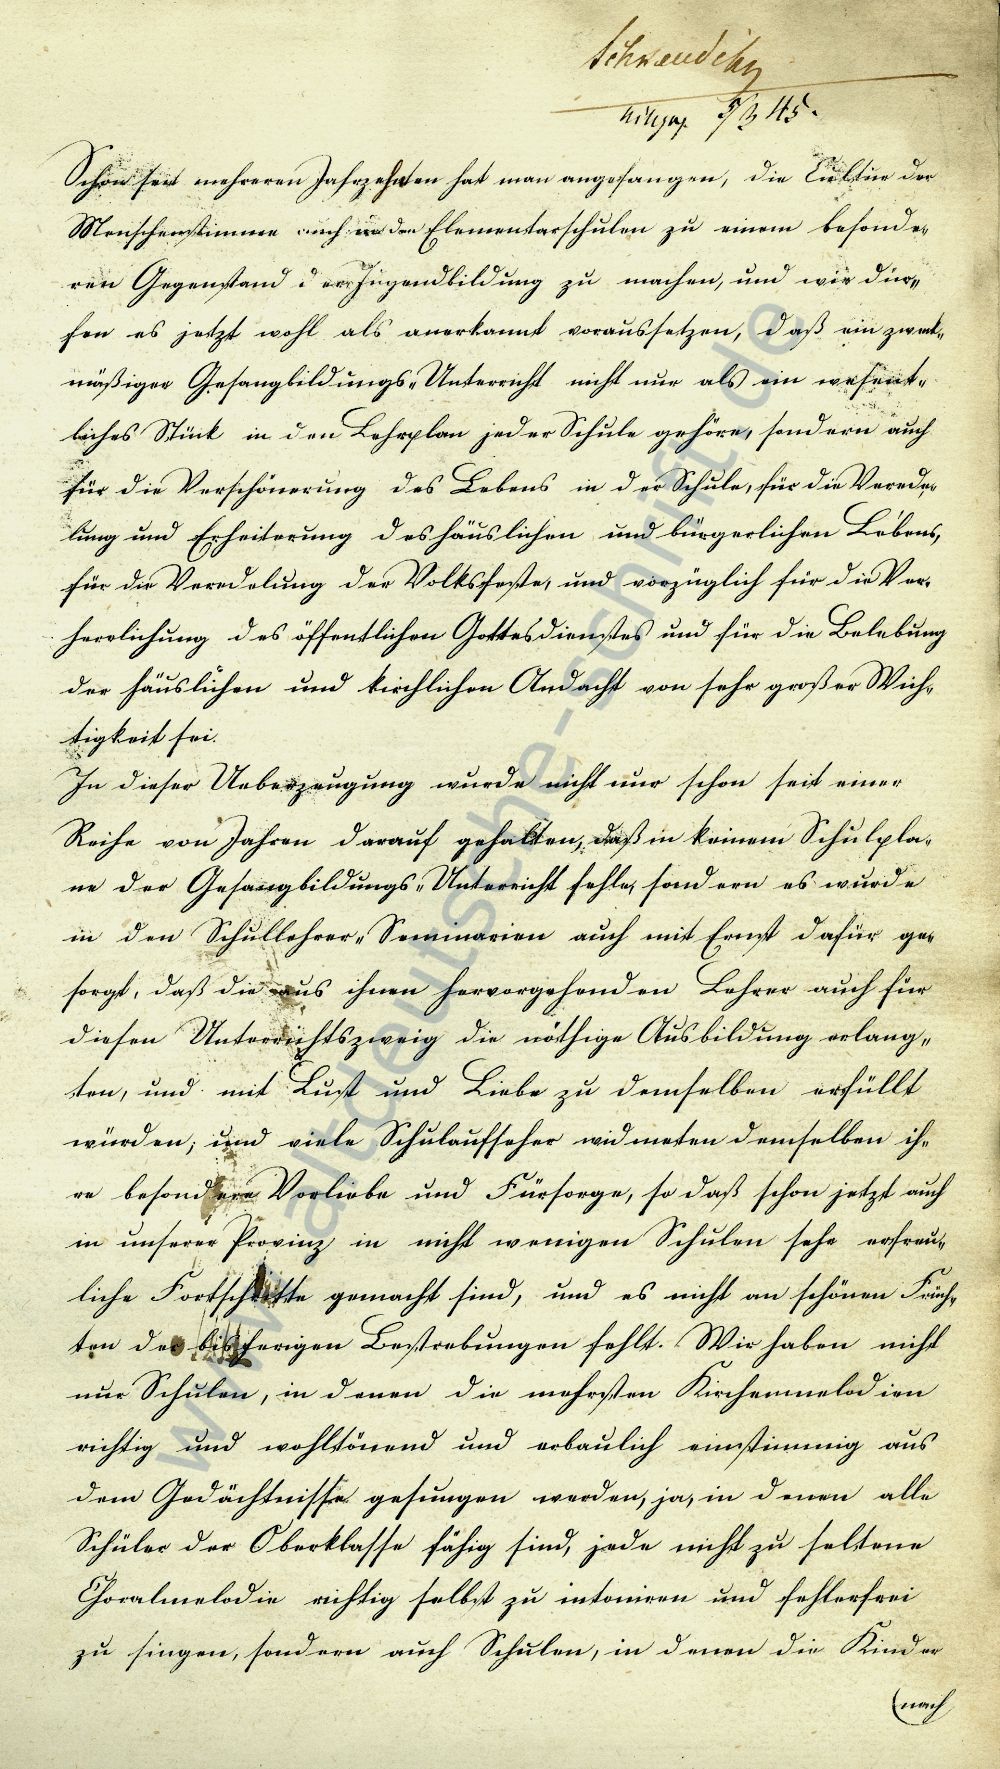 Schon seit mehreren Jahrzehnten hat man angefangen, die Cultur der
Menschenstimme auch in den Elementarschulen zu einem besonde-
ren Gegenstand der Jugendbildung zu machen, und wir dür-
fen es jetzt wohl als anerkannt voraussetzen, daß ein zweck-
mäßiger Gesangbildungs-Unterricht nicht nur als ein wesent-
liches Stück in den Lehrplan jeder Schule gehöre, sondern auch
für die Verschönerung des Lebens in der Schule, für die Verede-
lung und Erheiterung des häuslichen und bürgerlichen Lebens,
für die Veredelung der Volksfeste, und vorzüglich für die Ver-
herrlichung des öffentlichen Gottesdienstes und für die Belebung
der häuslichen und kirchlichen Andacht von sehr großer Wich-
tigkeit sei.
In dieser Ueberzeugung wurde nicht nur schon seit einer
Reihe von Jahren darauf gehalten, daß in keinem Schulpla-
ne der Gesangbildungs-Unterricht fehle, sondern es wurde
in den Schullehrer-Seminarien auch mit Ernst dafür ge-
sorgt, daß die aus ihnen hervorgehenden Lehrer auch für
diesen Unterrichtszweig die nöthige Ausbildung erlang-
ten, und mit Lust und Liebe zu demselben erfüllt
würden; und viele Schulaufseher widmeten demselben ih-
re besondere Vorliebe und Fürsorge, so daß schon jetzt auch
in unserer Provinz in nicht wenigen Schulen sehr erfreu-
liche Fortschritte gemacht sind, und es nicht an schönen Früch-
ten der bisherigen Bestrebungen fehlt. Wir haben nicht
nur Schulen, in denen die mehrsten Kirchenmelodien
richtig und wohltönend und erbaulich einstimmig aus
dem Gedächtnisse gesungen werden, ja, in denen alle
Schüler der Oberklasse fähig sind, jede nicht zu seltene
Choralmelodie richtig selbst zu intoniren und fehlerfrei
zu singen, sondern auch Schulen, in denen die Kinder
(nach
www.altdeutsche-schrift.de